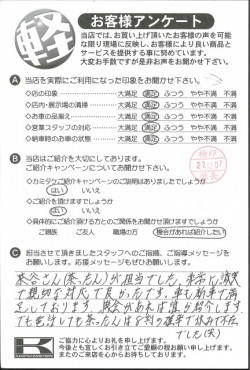 軽
お客様アンケート
当店では、お買い上げ頂いたお客様の声を可能
な限り現場に反映し、お客様により良い商品と
サービスを提供する事に努めています。
大変お手数ですが是非お声をお聞かせ下さい。
A 当店を実際にご利用になった印象をお聞かせ下さい。
◇店の印象 大満足 満足 ふつう やや不満 不満
◇店内・展示場の清掃 大満足 満足 ふつう やや不満 不満
◇お車の品揃え 大満足 満足 ふつう やや不満 不満
◇営業スタッフの対応 大満足 満足 ふつう やや不満 不満
◇納車時のお車の状態 大満足 満足 ふつう やや不満 不満
B 当店はご紹介を大切にしております。
ご紹介キャンペーンについてお聞かせ下さい。
◇カミタケご紹介キャンペーンのご説明はありましたでしょうか
はい いいえ
◇ご紹介を頂けますでしょうか
はい いいえ
◇具体的にご紹介頂ける方とのご関係をお聞かせ頂けますでしょうか
ご親族 ご友人 職場の方 機会があれば紹介したい
C 担当させて頂きましたスタッフへのご指摘、ご指導メッセージを
お願いします。応援メッセージもぜひお願いします。
茶谷さん(茶ったん)が担当でした。非常に誠実
で親切な対応で良かったです。車も新車で満
足しております。機会があれば誰か紹介します。
でも電話しても茶ったんは8割の確率で休みで不在
でした(笑)
K
ご協力に心よりお礼を申し上げます。
今後とも宜しくお引き立てご愛顧の程お願い申し上げます。
またのご来店を心からお待ちしております。